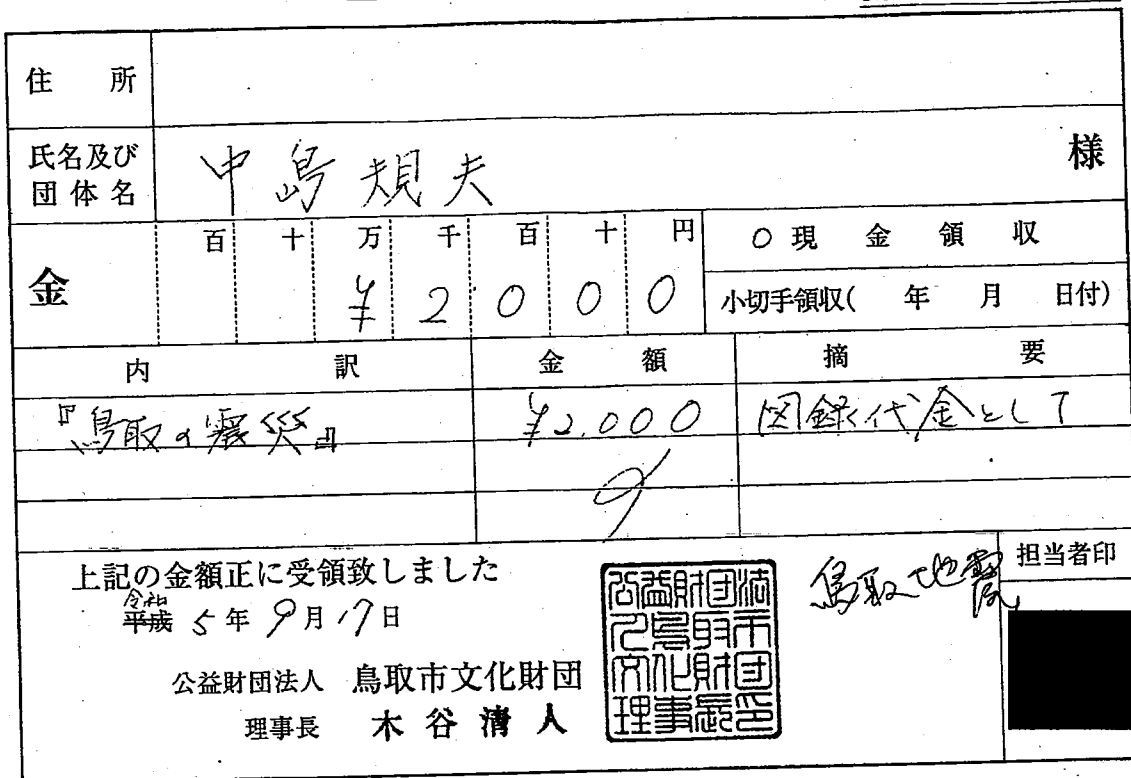 住所
氏名及び団体名 中島規夫 様
金 百 十 万 千 百 十 円
¥2000
○現金領収
小切手領収( 年 月 日付)
内訳 金額 摘要
『鳥取の震災』 ¥2,000 図録代金として
上記の金額正に受領致しました
令和
平成 5年9月17日
鳥取地震
担当者印
公益財団法人 鳥取市文化財団
理事長 木谷清人
公益財団法
人鳥取市
文化財団
理事長印